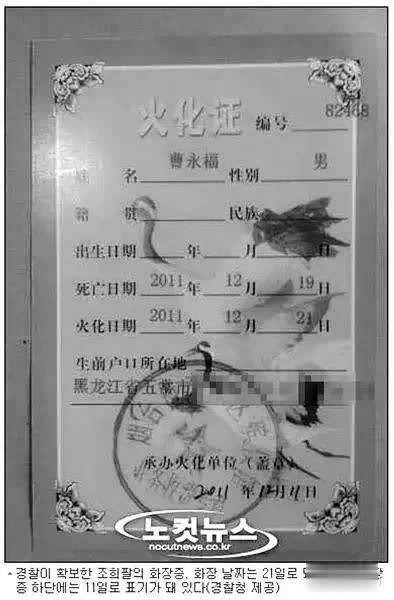 火化证 编号 82468
姓 名 曹永福 性别 男
籍 贯 民族
出生日期 年 月 日
死亡日期 2011 年 12 月 19 日
火化日期 2011 年 12 月 21 日
生前户口所在地
黑龙江省五常市
承办火化单位（盖章）
2011 年 12 月 11 日
노컷뉴스
nocutnews.co.kr
경찰이 확보한 조희팔의 화장증. 화장 날짜는 21일로
증 하단에는 11일로 표기가 돼 있다(경찰청 제공)